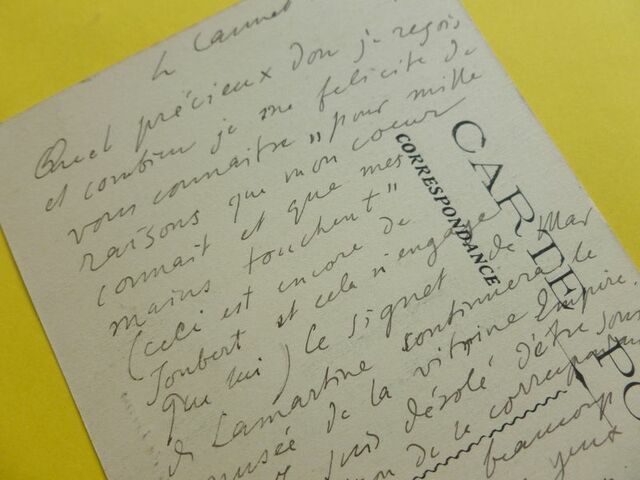 Le Cannet
Quel précieux don je reçois
et combien je me félicite de
vous connaître "pour mille
raisons que mon coeur
connait et que mes
mains touchent"
(ceci est encore de
Joubert et cela n'engage
que lui) Le signet de Mar
de Lamartine continuera le
musée de la vitrine Empire.
suis désolé d'être sous
de la correspondan
beaucoup
yeux
CARTE PO
CORRESPONDANCE